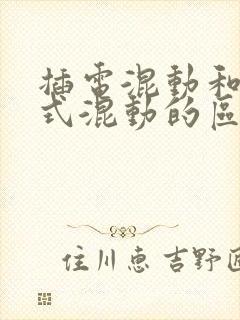 插電混動和
式混動的區
住川惠 吉野匠